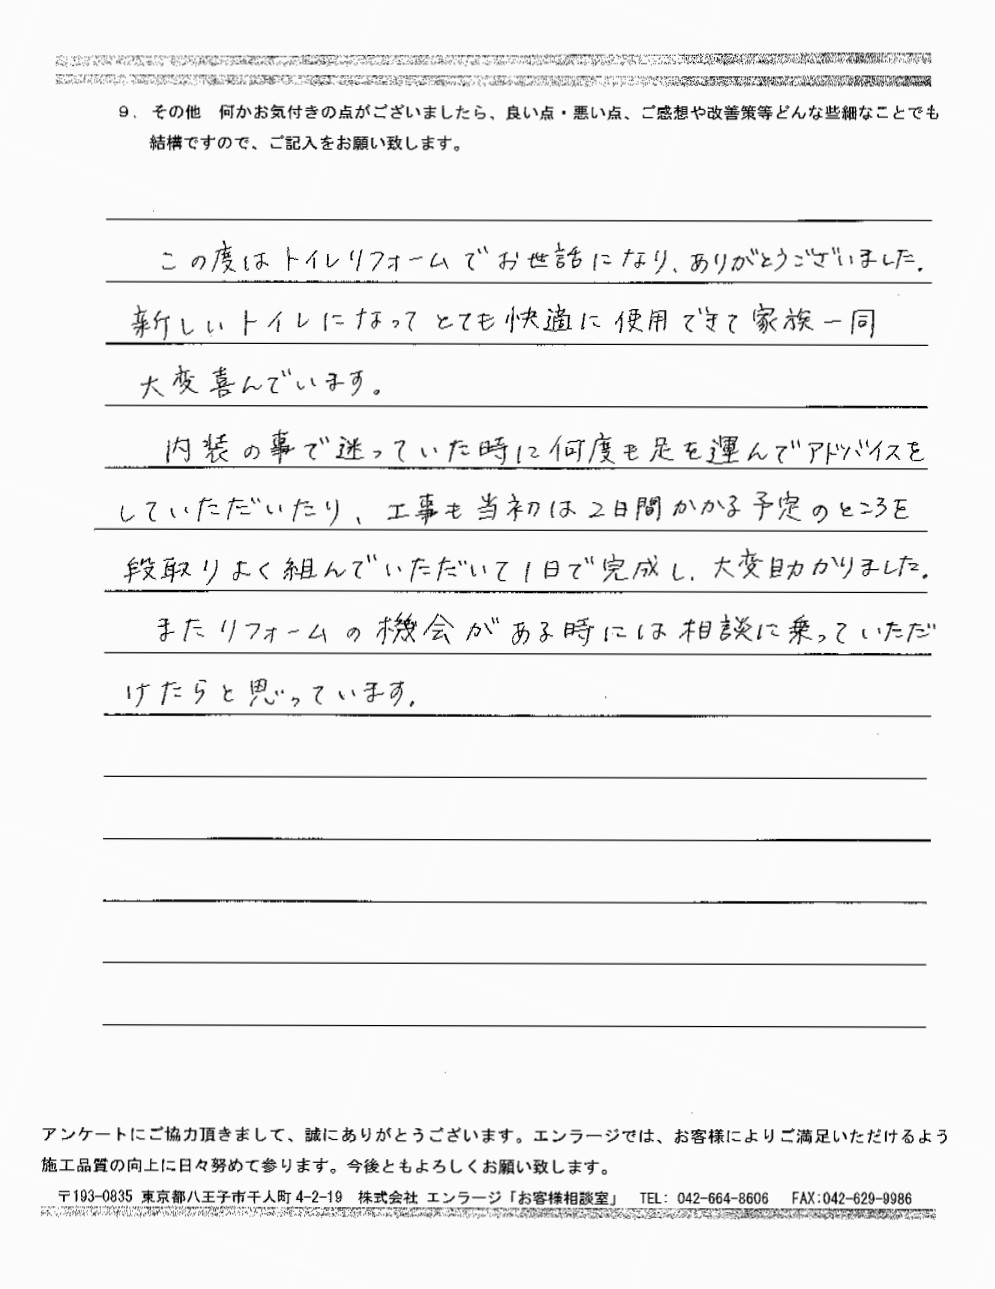 9. その他　何かお気付きの点がございましたら、良い点・悪い点、ご感想や改善策等どんな些細なことでも
結構ですので、ご記入をお願い致します。
この度はトイレリフォームでお世話になり、ありがとうございました。
新しいトイレになってとても快適に使用できて家族一同
大変喜んでいます。
内装の事で迷っていた時に何度も足を運んでアドバイスを
していただいたり、工事も当初は2日間かかる予定のところを
段取りよく組んでいただいて1日で完成し、大変助かりました。
またリフォームの機会がある時には相談に乗っていただ
けたらと思っています。
アンケートにご協力頂きまして、誠にありがとうございます。エンラージでは、お客様によりご満足いただけるよう
施工品質の向上に日々努めて参ります。今後ともよろしくお願い致します。
〒193-0835 東京都八王子市千人町4-2-19　株式会社 エンラージ「お客様相談室」　TEL: 042-664-8606　FAX:042-629-9986